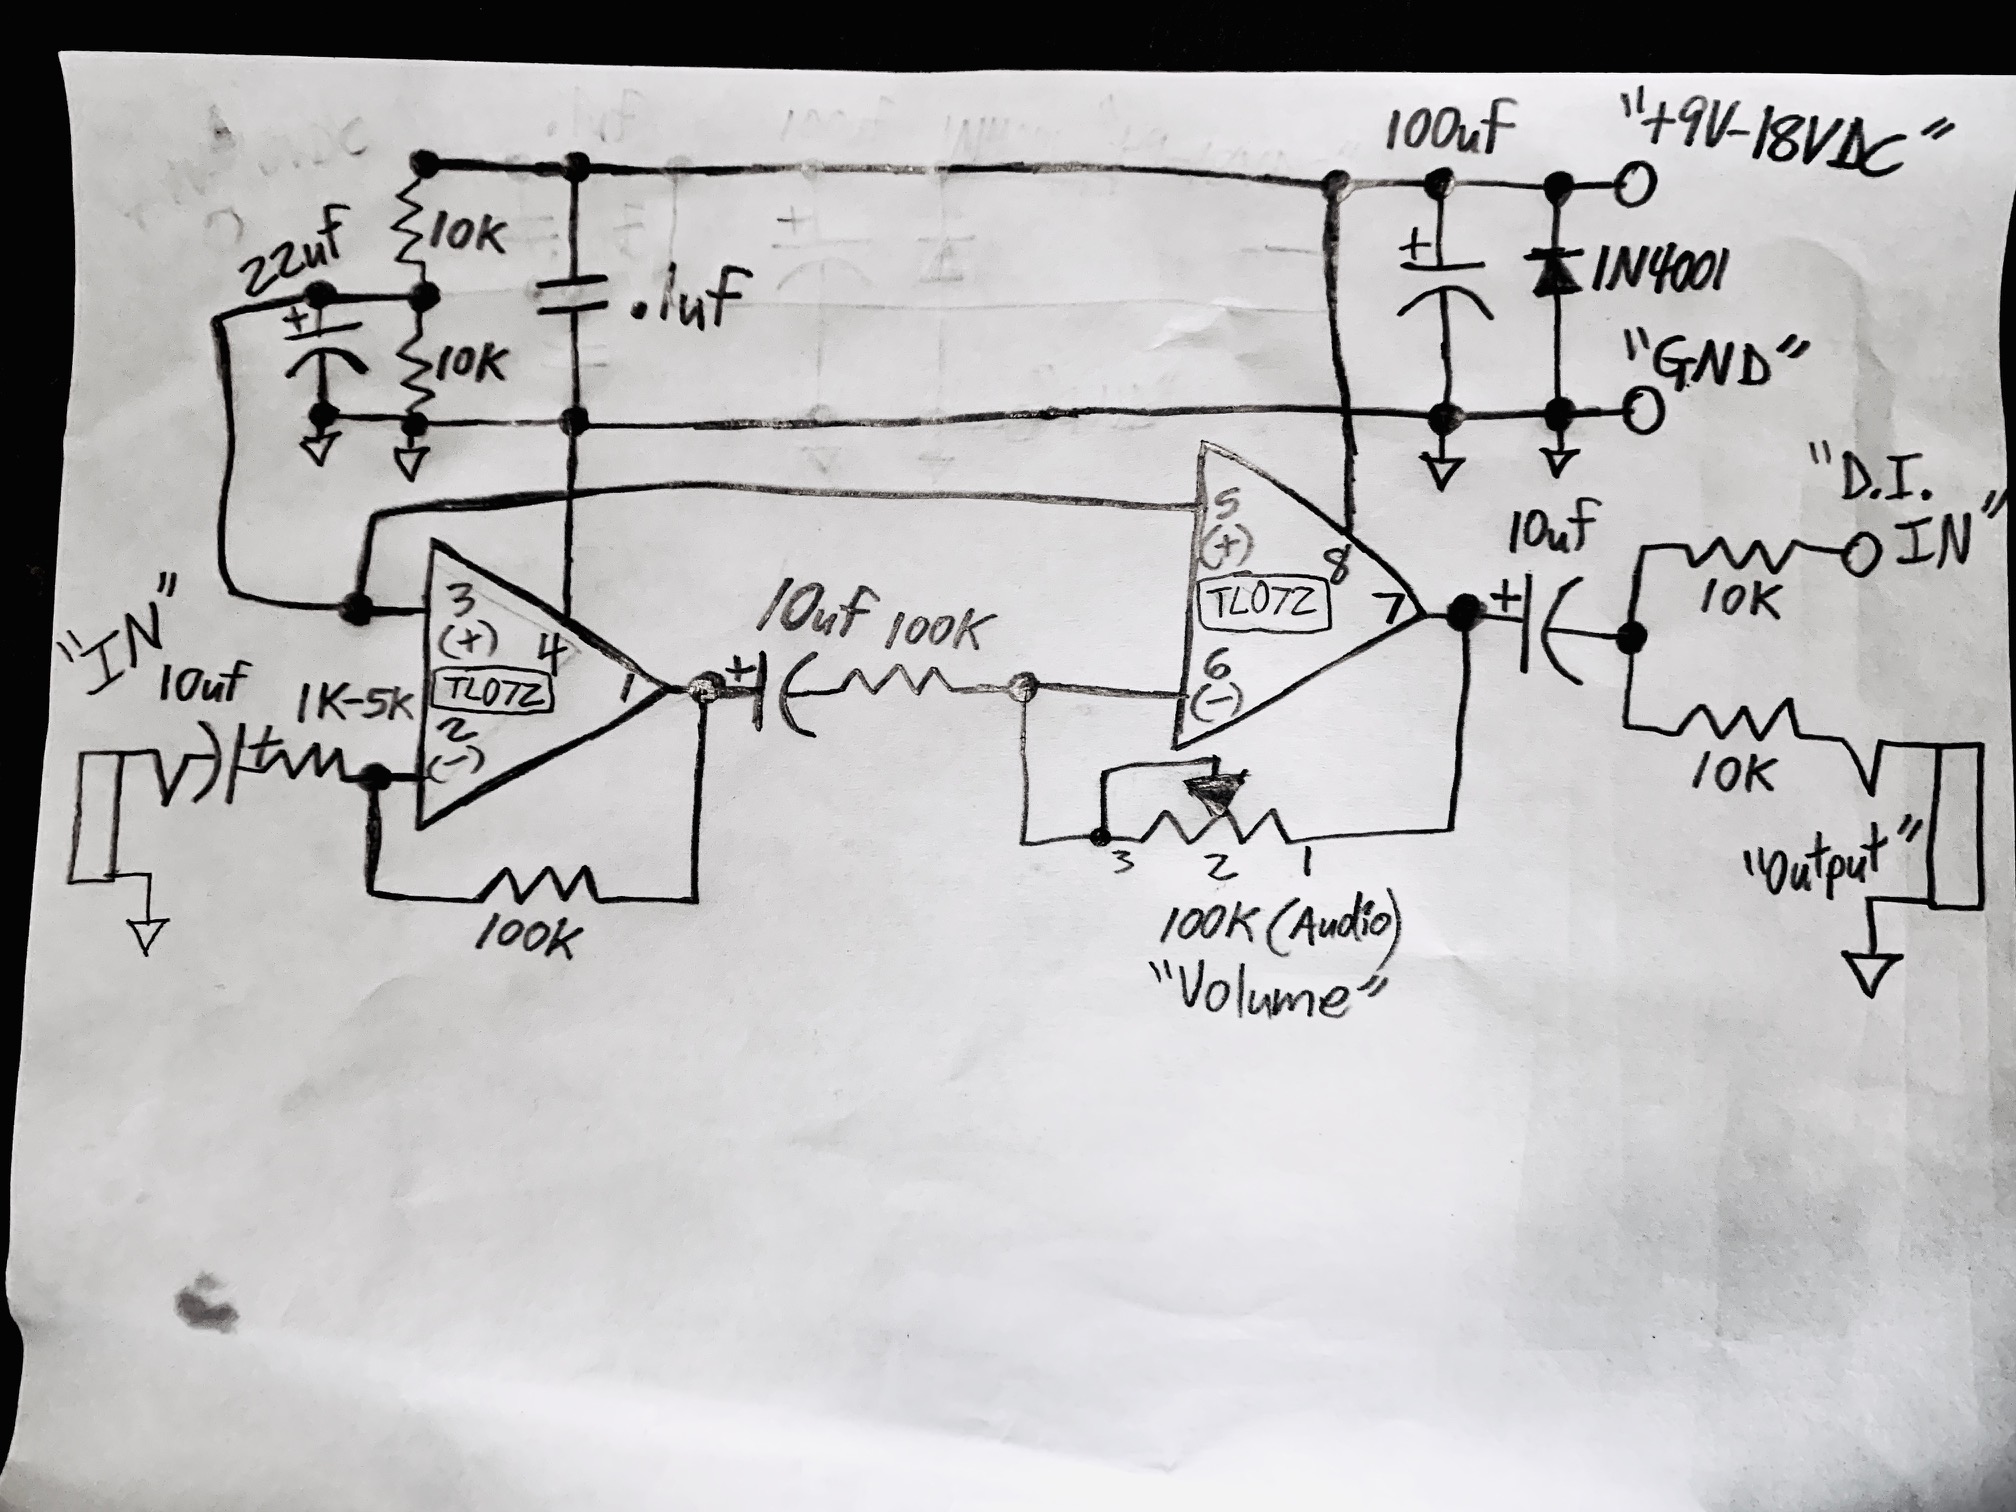 100uf
"+9V-18VDC"
22uf
+
10K
.1uf
+
1N4001
10K
"GND"
"D.I.
IN"
10uf
+
10K
5
(+)
8
TL072
7
6
(-)
"IN"
10uf
+
1K-5K
3
(+)
4
TL072
1
2
(-)
10uf
+
100K
10K
"Output"
100K
3
2
1
100K (Audio)
"Volume"